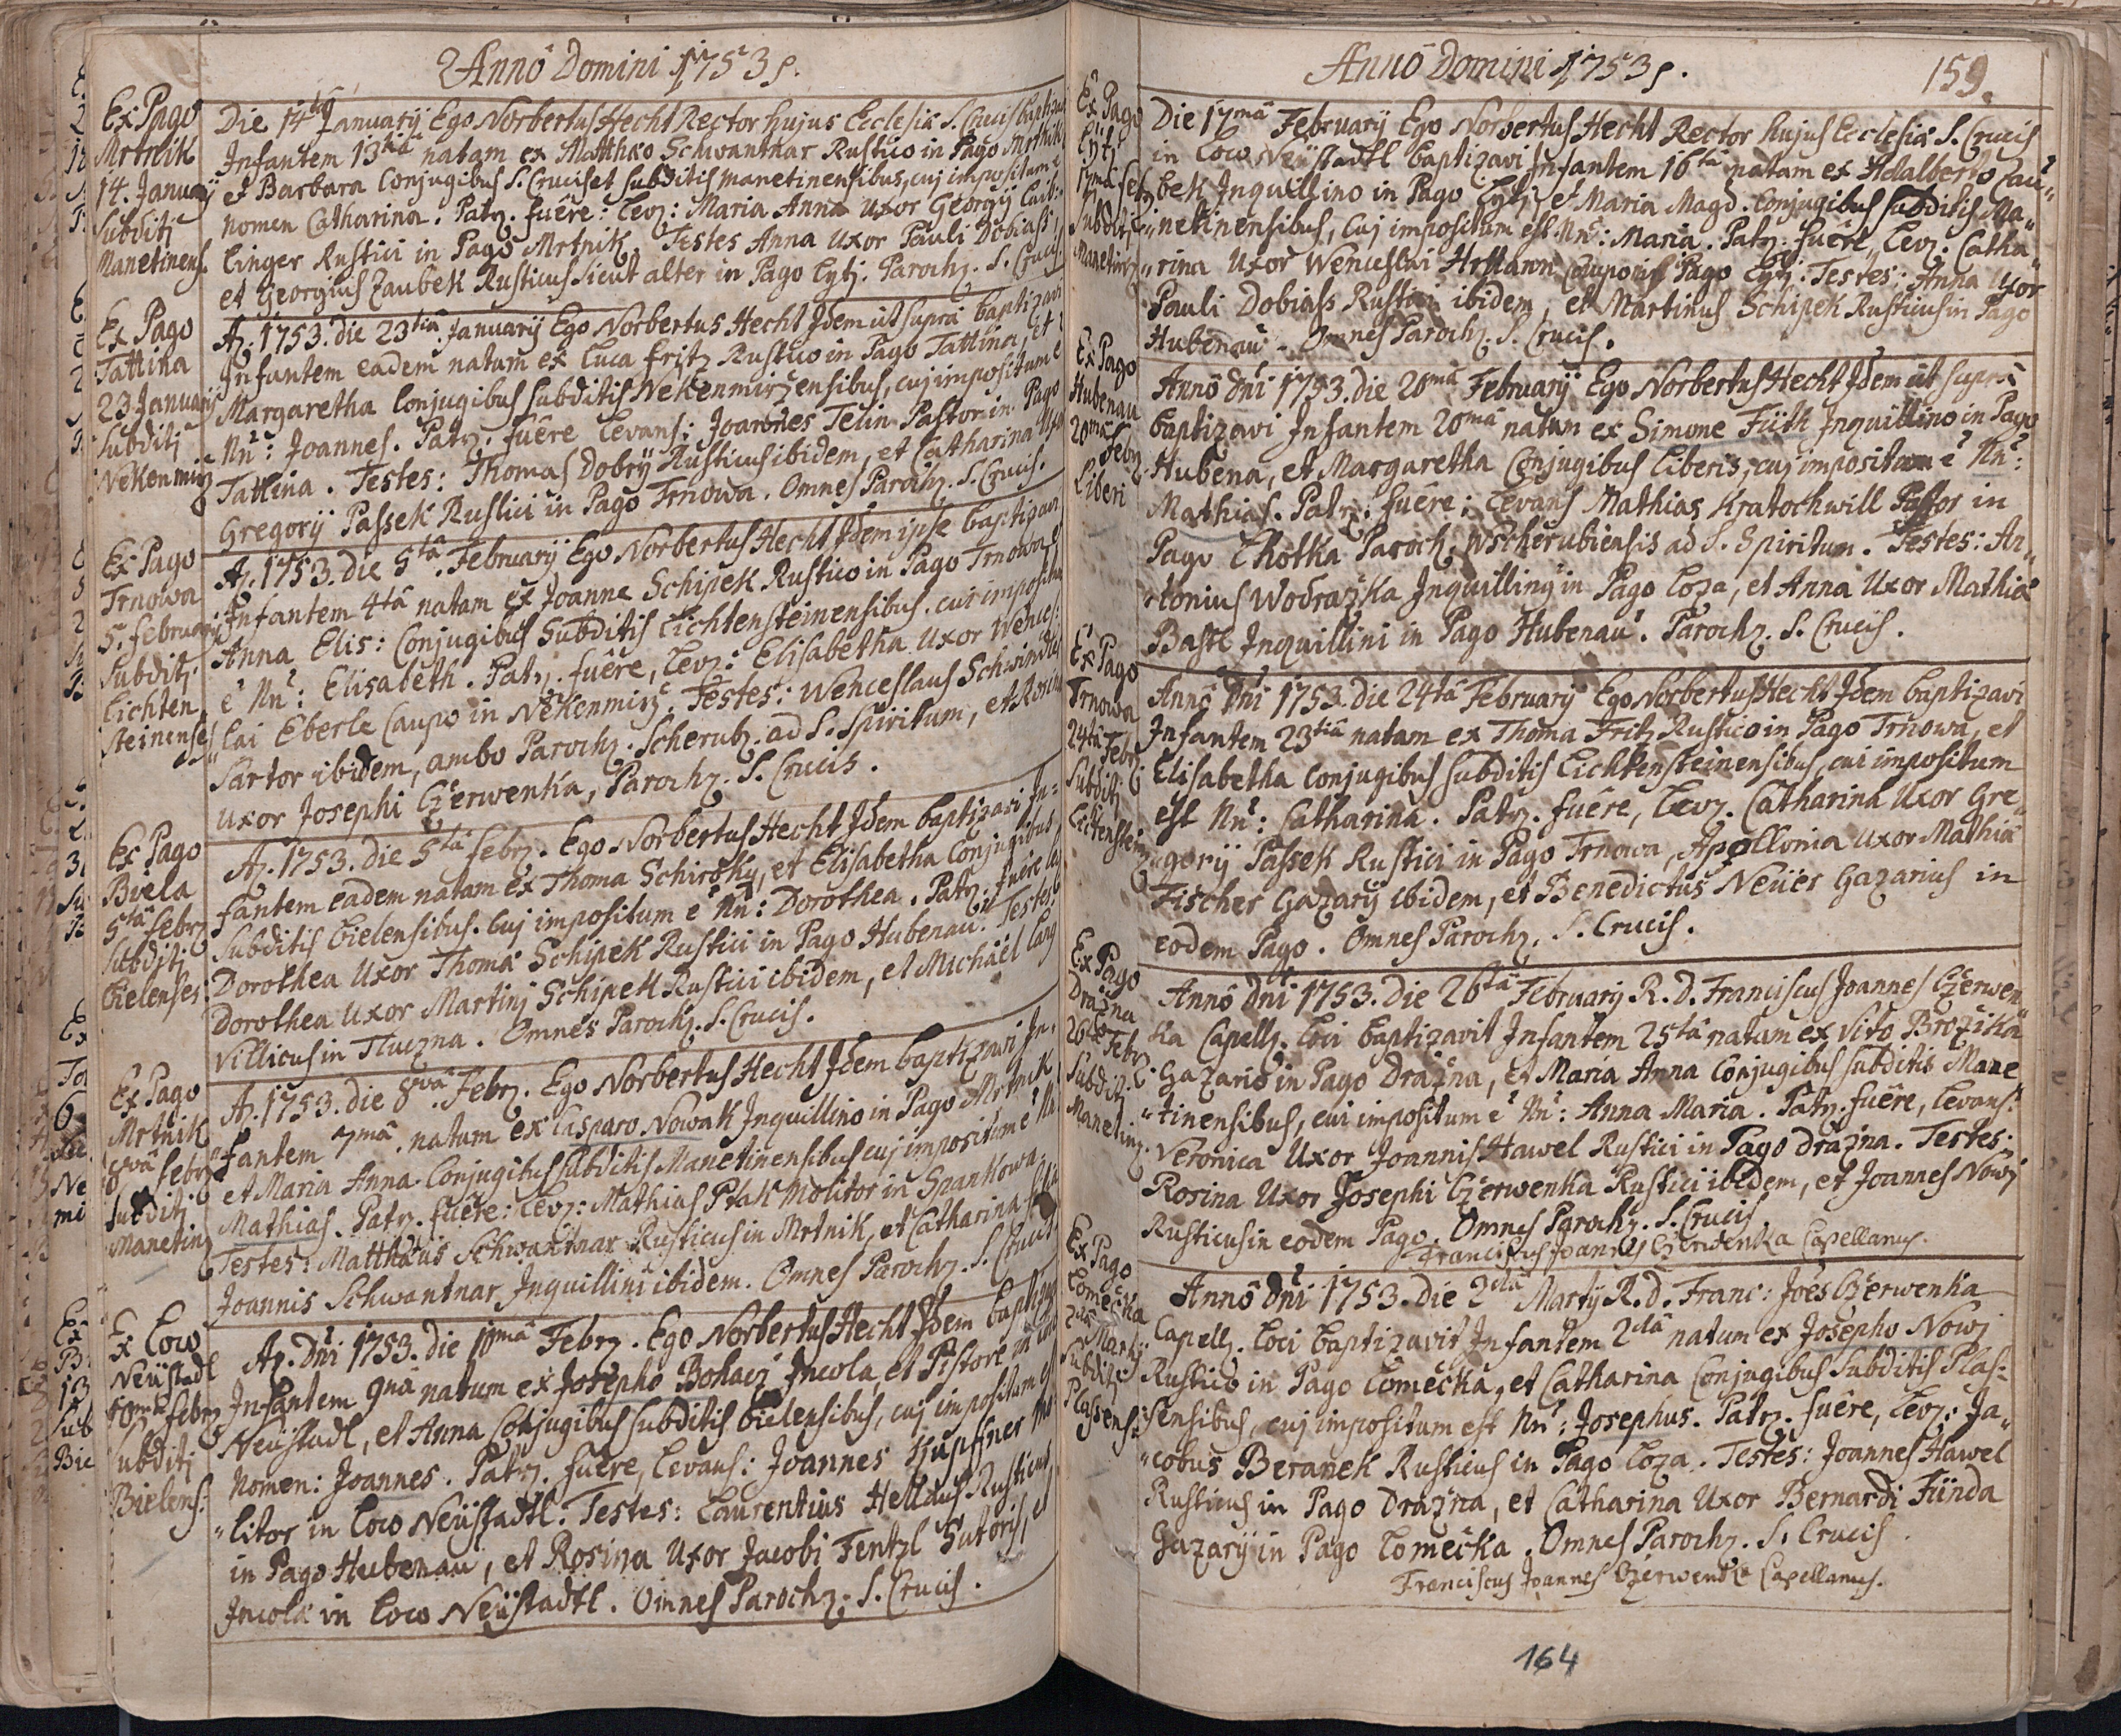 Annô Domini 1753.
Ex Pago
Mrtnik
14. Januarij
Subditj
Manetinens.
Die 14ta Januarij Ego Norbertus Hecht Rector hujus Ecclesiæ S. Crucis baptizavi
Infantem 13tiâ natam ex Matthæo Schwantnar Rustico in Pago Mrtnik
et Barbara Conjugibus S. Crucis et subditis Manetinensibus, cuj impositum ē
nomen Catharina. Patr. fuêre: Lev: Maria Anna Uxor Georgij
linger Rustici in Pago Mrtnik. Testes Anna Uxor Pauli Dobiass
et Georgius Zaubek Rusticus sicut alter in Pago Lytj. Paroch. S. Crucis
Ex Pago
Tattina
23 Januarij
Subditj
Nekenmirz
A. 1753. die 23tiâ Januarij Ego Norbertus Hecht Idem ut supra baptizavi
Infantem eadem natam ex Luca Fritz Rustico in Pago Tattina, et
Margaretha Conjugibus subditis Nekenmirzensibus, cuj impositum ē
Nn: Joannes. Patr. fuêre Levans: Joannes Telin Pastor in Pago
Tattina. Testes: Thomas Dobrÿ Rusticus ibidem, et Catharina Uxor
Gregorij Passek Rustici in Pago Trnowa. Omnes Paroch. S. Crucis.
Ex Pago
Trnowa
5. februarij
Subditj
Lichten
steinenses
A. 1753. die 5tâ. Februarij Ego Norbertus Hecht Idem ipse baptizavi
Infantem 4tâ natam ex Joanne Schipek Rustico in Pago Trnowa e
Anna Elis: Conjugibus Subditis Lichtensteinensibus. cui impositu
ē Nn: Elisabeth. Patr. fuêre, Lev: Elisabetha Uxor Wences:
lai Eberle Caupo in Nekenmirz. Testes: Wenceslaus Schwindtel
Sartor ibidem, ambo Paroch. Scherub. ad S. Spiritum, et Rosina
Uxor Josephi Czerwenka, Paroch. S. Crucis.
Ex Pago
Biela
5tâ febr
Subditj
Bielenses
A. 1753. die 5tâ febr. Ego Norbertus Hecht Idem baptizavi In-
fantem eadem natam ex Thoma Schirokÿ, et Elisabetha Conjugibus
Subditis Bielensibus. Cuj impositum ē Nn: Dorothea. Patr. fuêre le
Dorothea Uxor Thomæ Schipek Rustici in Pago Hubenau. Testes:
Dorothea Uxor Martinj Schipek Rustici ibidem, et Michaël Lang
Villicus in Tluczna. Omnes Paroch. S. Crucis.
Ex Pago
Mrtnik
8vâ febr
Subditj
Manetin
A. 1753. die 8vâ. Febr. Ego Norbertus Hecht Idem baptizavi In-
fantem 7mâ natum ex Casparo Nowak Inquillino in Pago Mrtnik
et Maria Anna Conjugibus subditis Manetinensibus cuj impositum ē Nn
Mathias. Patr. fuêre: Lev: Mathias Ptak Molitor in Spankowa.
Testes: Matthæus Schwantnar Rusticus in Mrtnik, et Catharina filia
Joannis Schwantnar Inquillini ibidem. Omnes Paroch. S. Crucis
Ex Loco
Neüstadl
10mâ febr
Subditj
Bielens:
A. Dni 1753. die 10mâ Febr. Ego Norbertus Hecht Idem baptizavi
Infantem 9nâ natum ex Josepho Bohacz Incola, et Pistore in loco
Neüstadl, et Anna Conjugibus subditis Bielensibus, cuj impositum est
Nomen: Joannes. Patr. fuêre, Levans: Joannes Kupffner Mo
litor in Loco Neüstadtl. Testes: Laurentius Hellaus Rusticus
in Pago Hubenau, et Rosina Uxor Jacobi Fentzl Sutoris, et
Incolæ in loco Neüstadtl. Omnes Paroch. S. Crucis.
Annô Domini 1753.
159.
Ex Pago
Lytj
17mâ feb
Subditj
Manetin
Die 17mâ Februarij Ego Norbertus Hecht Rector hujus Ecclesiæ S. Crucis
in Loco Neüstadtl baptizavi Infantem 16tâ natam ex Adalberto Zau"
bek Inquillino in Pago Lytj et Maria Magd. Conjugibus subditis Ma"
"netinensibus, Cuj impositum est Nn: Maria. Patr. fuêre, Lev. Catha"
"rina Uxor Wenceslai Hrmann Caupo in Pago Lytj: Testes: Anna Uxor
Pauli Dobiass Rustici ibidem, et Martinus Schipek Rusticus in Pago
Hubenau. Omnes Paroch. S. Crucis.
Ex Pago
Hubenau
20mâ
Febr
Liberi
Annô Dni 1753. die 20mâ Februarij Ego Norbertus Hecht Idem ut supra
baptizavi Infantem 20mâ natum ex Simone Fütk Inquillino in Pago
Hubena, et Margaretha Conjugibus Liberis, cuj impositum ē Nn:
Mathias. Patr: fuêre: Levans Mathias Kratochwill Pastor in
Pago Lhotka Paroch. Wscherubiensis ad S. Spiritum. Testes: An"
"tonius Wodrazka Inquillinus in Pago Loza, et Anna Uxor Mathiæ
Bastl Inquillini in Pago Hubenau. Paroch. S. Crucis.
Ex Pago
Trnowa
24tâ Febr
Subditj
Lichtenstein
Annô Dni 1753. die 24tâ Februarij Ego Norbertus Hecht Idem baptizavi
Infantem 23tiâ natam ex Thoma Fritz Rustico in Pago Trnowa, et
Elisabetha Conjugibus subditis Lichtensteinensibus, cui impositum
est Nn: Catharina. Patr. fuêre, Lev. Catharina Uxor Gre"
"gorij Passek Rustici in Pago Trnowa, Apollonia Uxor Mathiæ
Fischer Gazarij ibidem, et Benedictus Neüer Gazarius in
eodem Pago. Omnes Paroch. S. Crucis.
Ex Pago
Dražna
26tâ Febr
Subdit
Manetin
Annô Dni 1753. Die 26tâ Februarij R. D. Franciscus Joannes Czerwen"
ka Capell. Loci baptizavit Infantem 25tâ natam ex Vito Brožika
Gazario in Pago Dražna, et Maria Anna Conjugibus subditis Mane
"tinensibus, cui impositum ē Nn: Anna Maria. Patr. fuêre, Levans:
Veronica Uxor Joannis Hawel Rustici in Pago Dražna. Testes:
Rosina Uxor Josephi Czerwenka Rustici ibidem, et Joannes Nowj
Rusticus in eodem Pago. Omnes Paroch. S. Crucis
Franciscus Joannes Czerwenka Capellanus.
Ex Pago
Lomečka
2dâ Martij
Subditj
Plassens:
Annô Dni 1753. die 2dâ Martij R. D. Franc: Joes Czerwenka
Capell. Loci baptizavit Infantem 2dâ natum ex Josepho Nowj
Rustico in Pago Lomečka, et Catharina Conjugibus Subditis Plas:
sensibus, cuj impositum est Nn: Josephus. Patr. fuêre, Lev: Ja"
"cobus Beranek Rusticus in Pago Loza. Testes: Joannes Hawel
Rusticus in Pago Dražna, et Catharina Uxor Bernardi Fünda
Gazarij in Pago Lomečka. Omnes Paroch. S. Crucis
Franciscus Joannes Czerwenka Capellanus.
164